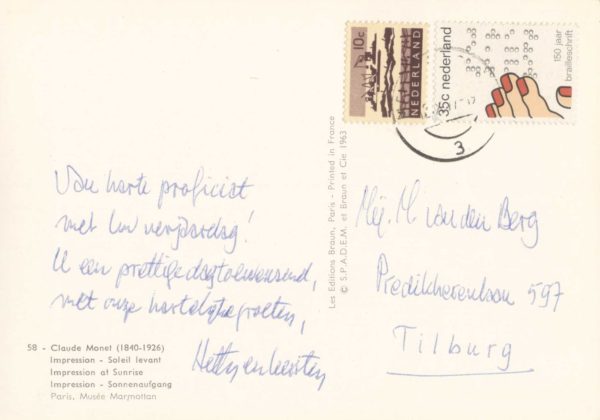 10c
NEDERLAND
35c nederland
150 jaar
brailleschrift
3
Van harte proficiat
met Uw verjaardag!
U een prettige dag toewensend,
met onze hartelijke groeten,
Mej. M. van den Berg
Predikherenlaan 597
Tilburg
Les Editions Braun, Paris - Printed in France
© S.P.A.D.E.M. et Braun et Cie 1963
58 - Claude Monet (1840-1926)
Impression - Soleil levant
Impression at Sunrise
Impression - Sonnenaufgang
Paris, Musée Marmottan